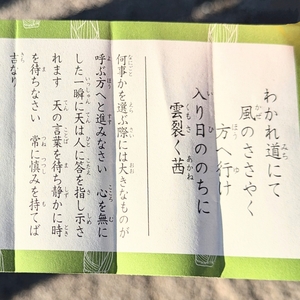 わかれ道にて
風のささやく
方へ行け
入り日ののちに
雲裂く茜
何事かを選ぶ際には大きなものが
呼ぶ方へと進みなさい 心を無に
した一瞬に天は人に答を指し示さ
れます 天の言葉を待ち静かに時
を待ちなさい 常に慎みを持てば
吉なり